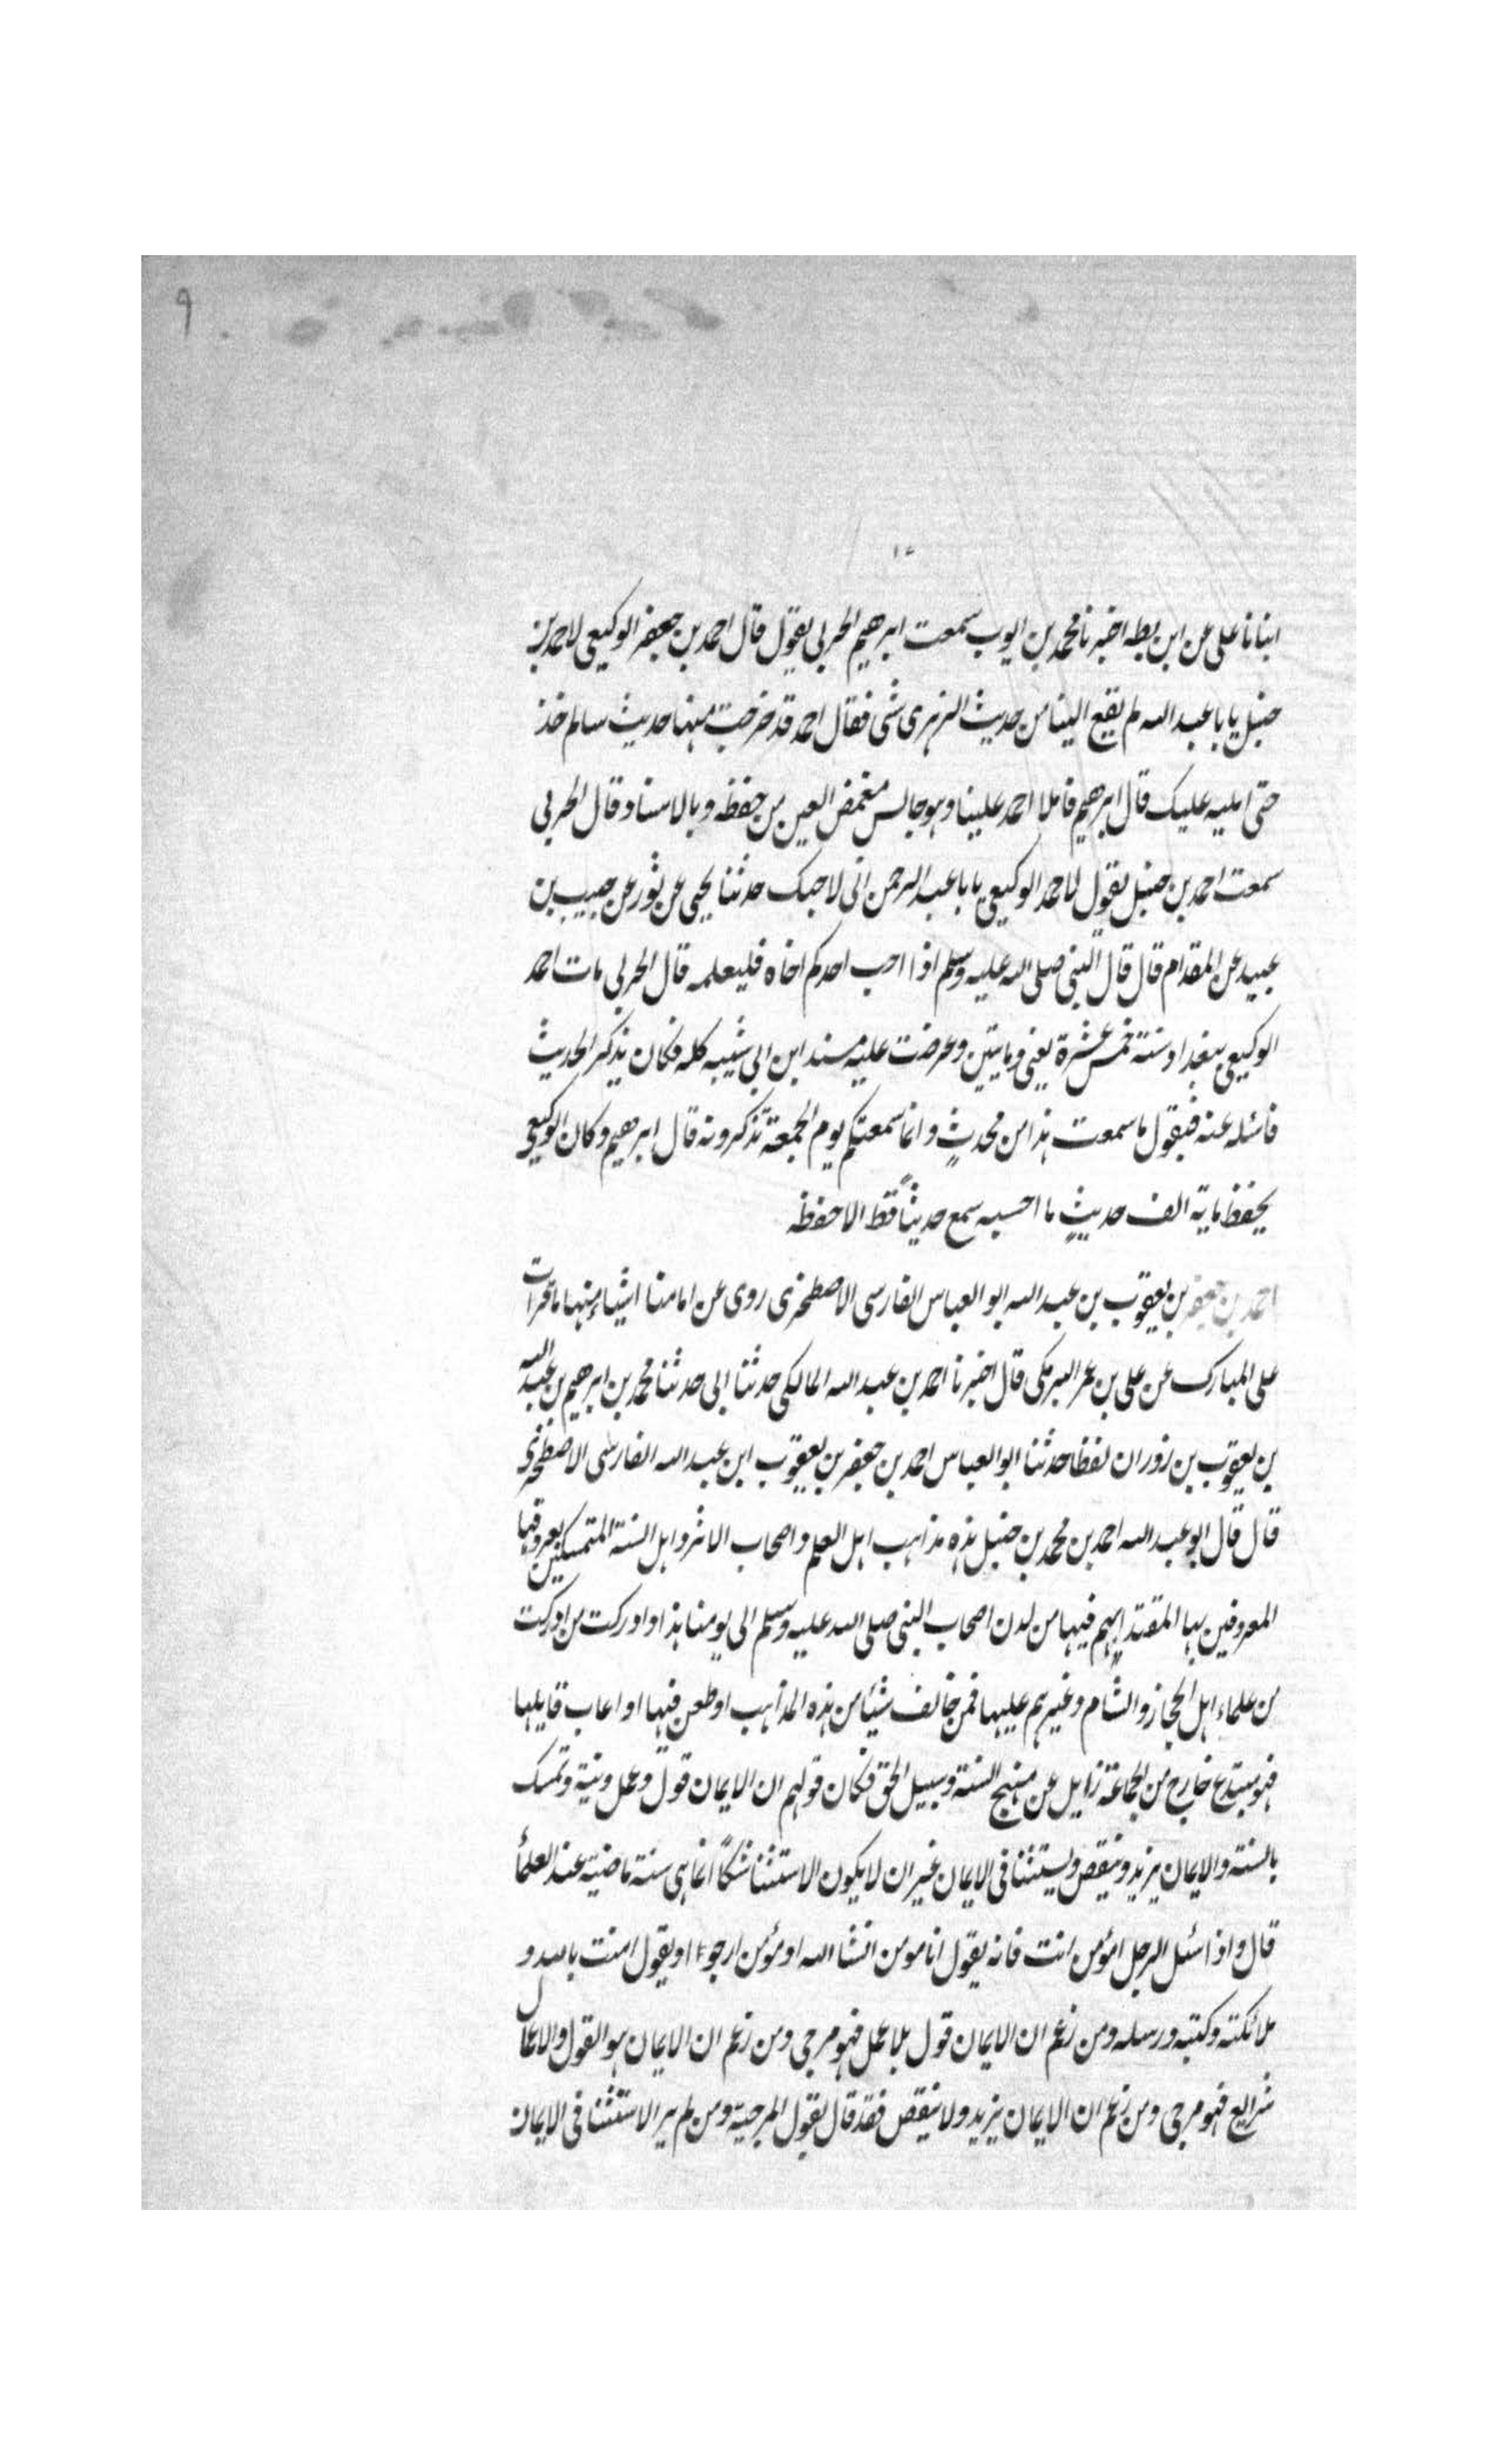 ٩
١٠
انبانا على عن ابن بطه اخبرنا محمد بن ايوب سمعت ابرهيم الحربى يقول قال احمد بن جعفر الوكيعى لاحمد بن
حنبل يا با عبد الله لم يقع الينا من حديث الزهرى شى فقال احمد قد خرجت منها حديث سالم خذ
حتى امليه عليك قال ابرهيم فاملا احمد علينا وهو جالس مغمض العين من حفظه وبالاسناد قال الحربى
سمعت احمد بن حنبل يقول لاحمد الوكيعى يا با عبد الرحمن انى لاحبك حدثنا يحيى عن ثور عن حبيب بن
عبيد عن المقدام قال قال النبى صلى الله عليه وسلم اذا احب احدكم اخاه فليعلمه قال الحربى مات احمد
الوكيعى ببغداد سنة خمس عشرة يعنى ومايتين وعرضت عليه مسند ابن ابى شيبه كله فكان يذكر الحديث
فاسئله عنه فيقول ما سمعت هذا من محدثٍ وانما سمعتكم يوم الجمعة تذكرونه قال ابرهيم وكان الوكيعى
يحفظ ماية الف حديثٍ ما احسبه سمع حديثاً قط الا حفظه
احمد بن جعفر بن يعقوب بن عبد الله ابو العباس الفارسى الاصطخرى روى عن امامنا اشياء منها ما قرات
على المبارك عن على بن عمر البرمكى قال اخبرنا احمد بن عبد الله المالكى حدثنا ابى حدثنا محمد بن ابرهيم بن عبد الله
بن يعقوب بن زوران لفظا حدثنا ابو العباس احمد بن جعفر بن يعقوب ابن عبد الله الفارسى الاصطخرى
قال قال ابو عبد الله احمد بن محمد بن حنبل هذه مذاهب اهل العلم واصحاب الاثر واهل السنة المتمسكين بعروقها
المعروفين بها المقتدا بهم فيها من لدن اصحاب النبى صلى الله عليه وسلم الى يومنا هذا وادركت من ادركت
من علماء اهل الحجاز والشام وغيرهم عليها فمن خالف شيئا من هذه المذاهب او طعن فيها او اعاب قايلها
فهو مبتدع خارج من الجماعة زايل عن منهج السنة وسبيل الحق فكان قولهم ان الايمان قول وعمل ونية وتمسك
بالسنة والايمان يزيد وينقص ويستثنا فى الايمان غير ان لا يكون الاستثنا شكًا انما هى سنة ماضية عند العلمأ
قال واذا سئل الرجل امؤمن انت فانه يقول انا مومن انشا الله او مؤمن ارجو او يقول امنت بالله و
ملائكته وكتبه ورسله ومن زعم ان الايمان قول بلا عمل فهو مرجى ومن زعم ان الايمان هو القول والاعمال
شرايع فهو مرجى ومن زعم ان الايمان يزيد ولا ينقص فقد قال بقول المرجية ومن لم ير الاستثنا فى الايمان